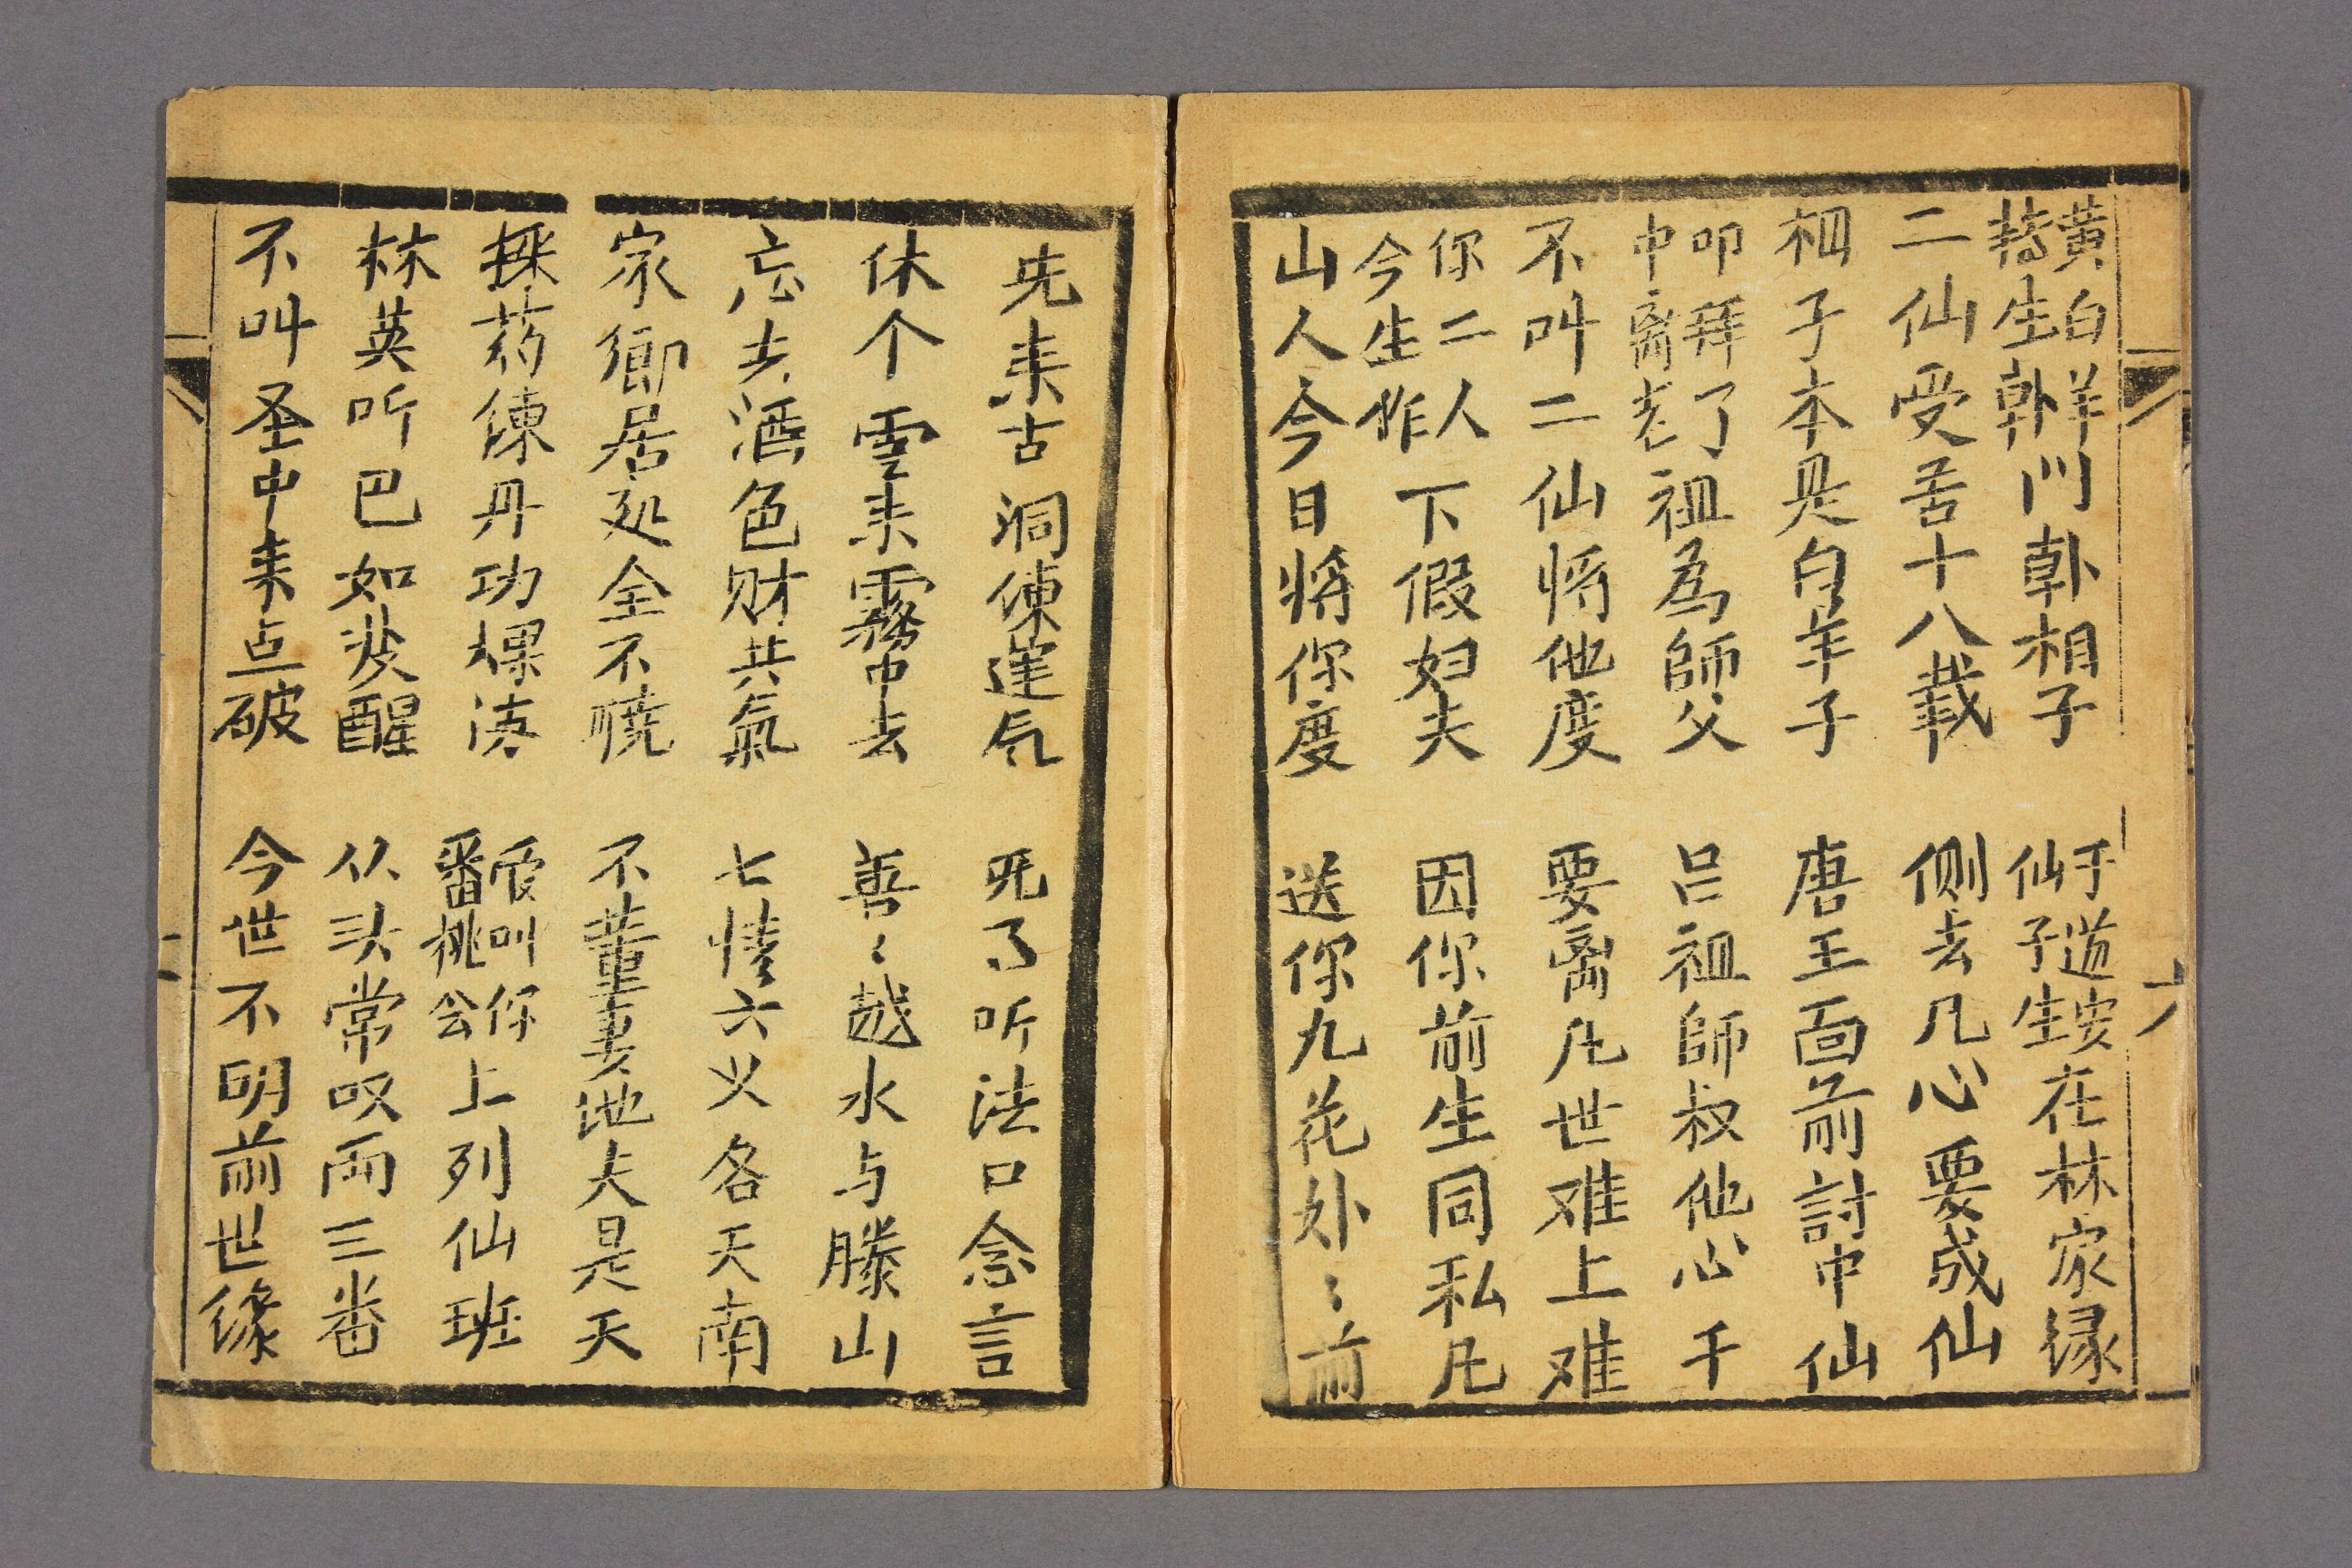 黄白羊替生韩门韩相子 于道安仙子生在林家缘
二仙受苦十八载 侧去凡心要成仙
相子本是白羊子 唐王面前討中仙
叩拜了中离老祖為師父 吕祖師叔他心千
不叫二仙将他度 要离凡世难上难
你二人今生作下假妇夫 因你前生同私凡
山人今日将你度 送你九花外〻前
先来古洞煉運气 死了听法口念言
休个雲来霧中去 善〻越水与滕山
忘去酒色财共氣 七情六义各天南
家鄉居处全不曉 不董妻池夫是天
採药煉丹功果湊 爰叫你番桃会上列仙班
林英听巴如梦醒 从头常叹两三番
不叫圣中来点破 今世不明前世缘
六